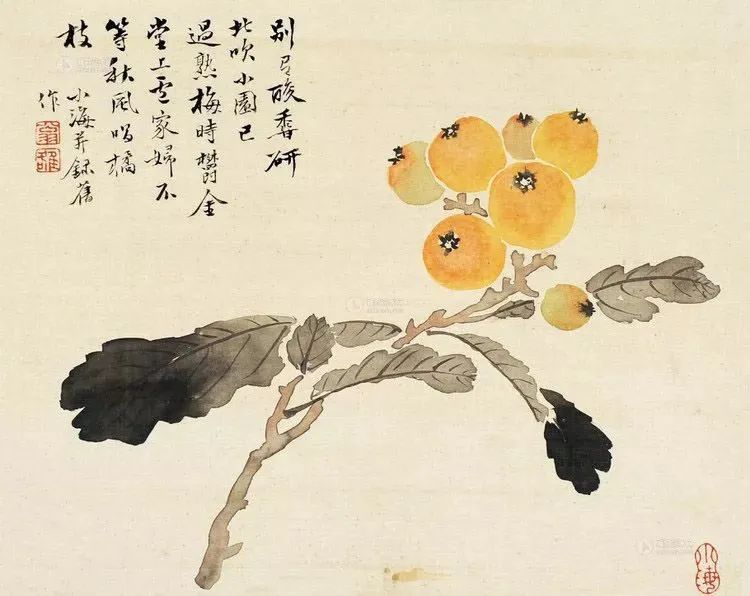 别有酸香研
北吹小園已
過熟梅時鬱金
堂上盧家婦不
等秋風橘
枝
小海并錄舊
作
翁雒
小海